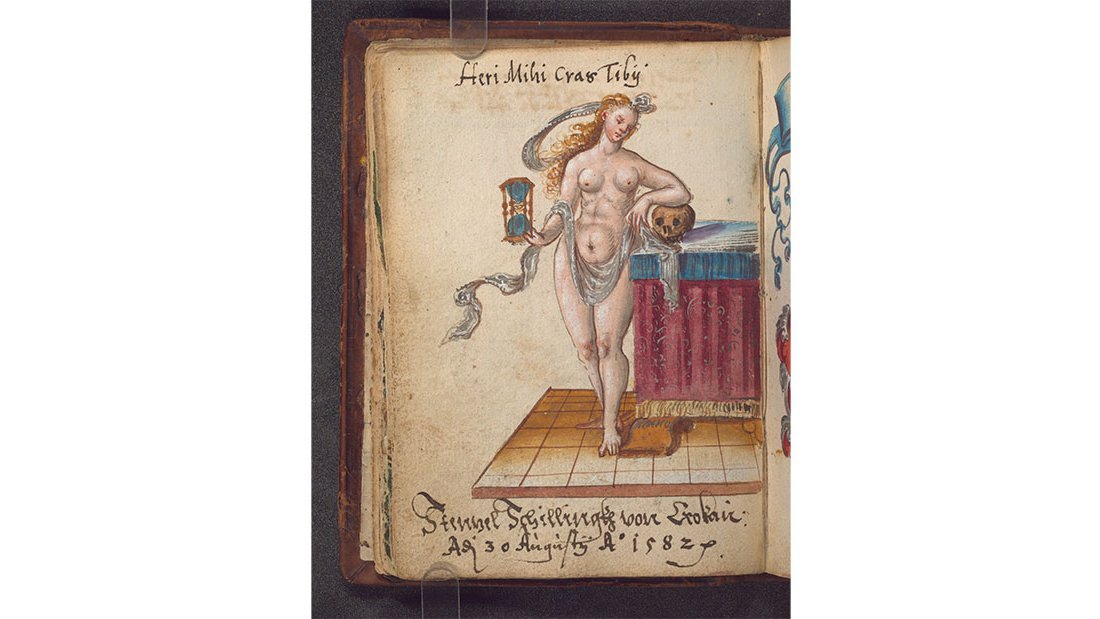 Heri Mihi Cras Tibÿ
Stenzel Schillingk von Crokau:
Adj 30 Augustÿ A° 1582